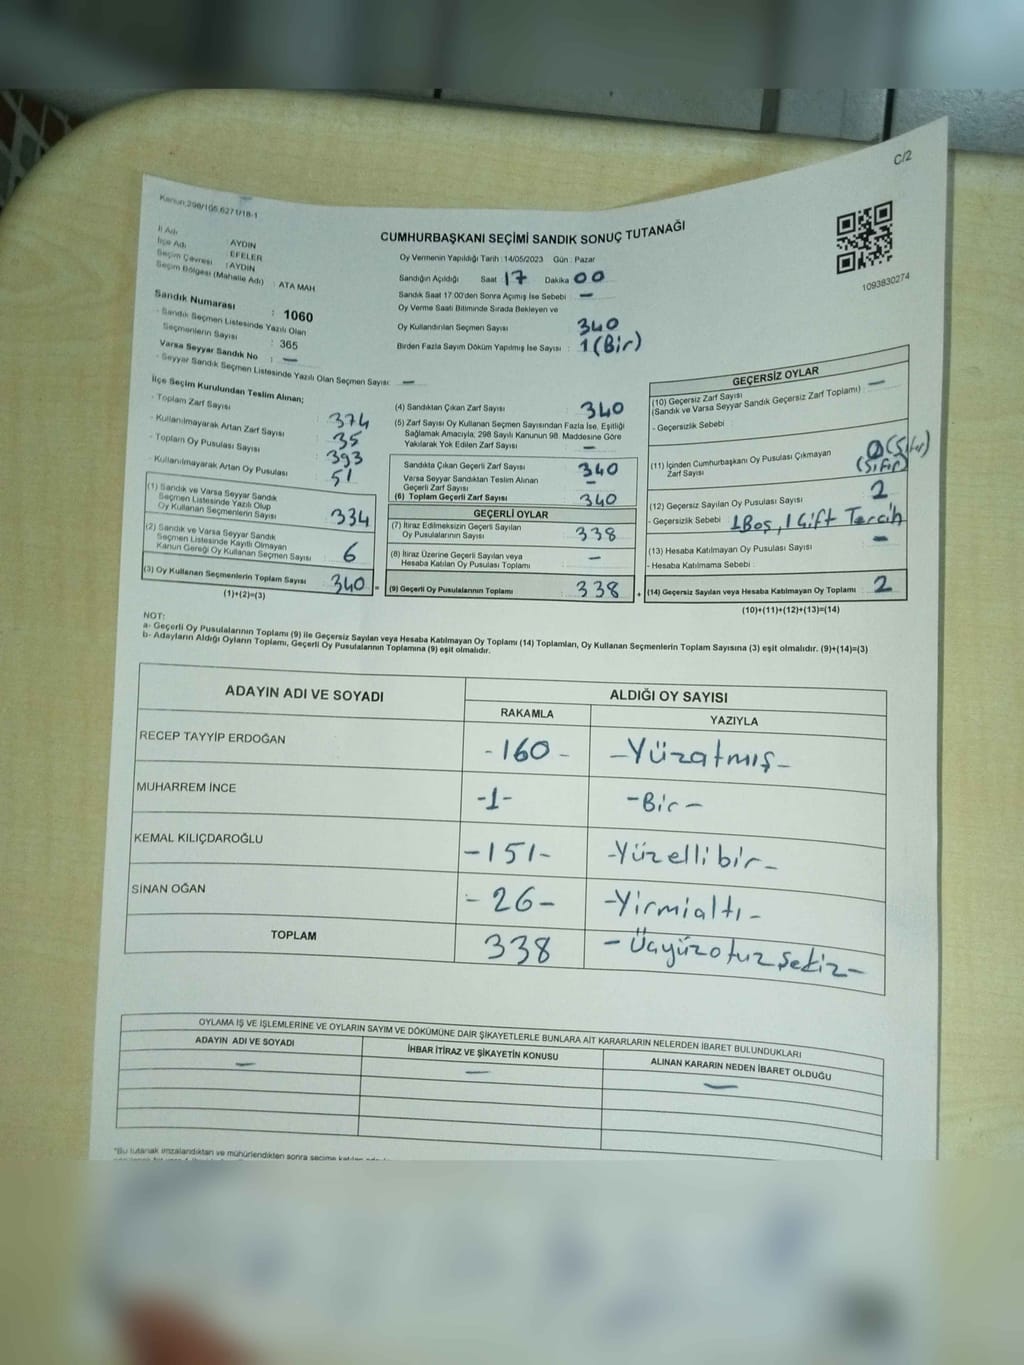 C/2
Kanun,298/105,6271/18-1
CUMHURBAŞKANI SEÇİMİ SANDIK SONUÇ TUTANAĞI
1093830274
İl Adı : AYDIN
İlçe Adı : EFELER
Seçim Çevresi : AYDIN
Seçim Bölgesi (Mahalle Adı) : ATA MAH
Sandık Numarası : 1060
- Sandık Seçmen Listesinde Yazılı Olan
Seçmenlerin Sayısı : 365
Varsa Seyyar Sandık No : —
- Seyyar Sandık Seçmen Listesinde Yazılı Olan Seçmen Sayısı: —
Oy Vermenin Yapıldığı Tarih : 14/05/2023 Gün : Pazar
Sandığın Açıldığı Saat : 17 Dakika 00
Sandık Saat 17:00'den Sonra Açımış İse Sebebi : —
Oy Verme Saati Bitiminde Sırada Bekleyen ve
Oy Kullandırılan Seçmen Sayısı : 340
Birden Fazla Sayım Döküm Yapılmış İse Sayısı : 1 (Bir)
İlçe Seçim Kurulundan Teslim Alınan;
- Toplam Zarf Sayısı : 374
- Kullanılmayarak Artan Zarf Sayısı : 35
- Toplam Oy Pusulası Sayısı : 393
- Kullanılmayarak Artan Oy Pusulası : 51
(1) Sandık ve Varsa Seyyar Sandık
Seçmen Listesinde Yazılı Olup
Oy Kullanan Seçmenlerin Sayısı : 334
(2) Sandık ve Varsa Seyyar Sandık
Seçmen Listesinde Kayıtlı Olmayan
Kanun Gereği Oy Kullanan Seçmen Sayısı : 6
(3) Oy Kullanan Seçmenlerin Toplam Sayısı : 340 =
(1)+(2)=(3)
(4) Sandıktan Çıkan Zarf Sayısı : 340
(5) Zarf Sayısı Oy Kullanan Seçmen Sayısından Fazla İse, Eşitliği
Sağlamak Amacıyla, 298 Sayılı Kanunun 98. Maddesine Göre
Yakılarak Yok Edilen Zarf Sayısı : —
Sandıkta Çıkan Geçerli Zarf Sayısı : 340
Varsa Seyyar Sandıktan Teslim Alınan
Geçerli Zarf Sayısı : —
(6) Toplam Geçerli Zarf Sayısı : 340
GEÇERLİ OYLAR
(7) İtiraz Edilmeksizin Geçerli Sayılan
Oy Pusulalarının Sayısı : 338
(8) İtiraz Üzerine Geçerli Sayılan veya
Hesaba Katılan Oy Pusulası Toplamı : —
(9) Geçerli Oy Pusulalarının Toplamı : 338 +
GEÇERSİZ OYLAR
(10) Geçersiz Zarf Sayısı : —
(Sandık ve Varsa Seyyar Sandık Geçersiz Zarf Toplamı)
- Geçersizlik Sebebi :
(11) İçinden Cumhurbaşkanı Oy Pusulası Çıkmayan : 0 (Sıfır)
Zarf Sayısı (Sıfır)
(12) Geçersiz Sayılan Oy Pusulası Sayısı : 2
- Geçersizlik Sebebi : 1 Boş, 1 Çift Tercih
(13) Hesaba Katılmayan Oy Pusulası Sayısı : —
- Hesaba Katılmama Sebebi :
(14) Geçersiz Sayılan veya Hesaba Katılmayan Oy Toplamı : 2
(10)+(11)+(12)+(13)=(14)
NOT:
a- Geçerli Oy Pusulalarının Toplamı (9) ile Geçersiz Sayılan veya Hesaba Katılmayan Oy Toplamı (14) Toplamları, Oy Kullanan Seçmenlerin Toplam Sayısına (3) eşit olmalıdır. (9)+(14)=(3)
b- Adayların Aldığı Oyların Toplamı, Geçerli Oy Pusulalarının Toplamına (9) eşit olmalıdır.
ADAYIN ADI VE SOYADI ALDIĞI OY SAYISI
RAKAMLA YAZIYLA
RECEP TAYYİP ERDOĞAN -160- -Yüzatmış-
MUHARREM İNCE -1- -Bir-
KEMAL KILIÇDAROĞLU -151- -Yüzellibir-
SİNAN OĞAN -26- -Yirmialtı-
TOPLAM 338 -Üçyüzotuzsekiz-
OYLAMA İŞ VE İŞLEMLERİNE VE OYLARIN SAYIM VE DÖKÜMÜNE DAİR ŞİKAYETLERLE BUNLARA AİT KARARLARIN NELERDEN İBARET BULUNDUKLARI
ADAYIN ADI VE SOYADI İHBAR İTİRAZ VE ŞİKAYETİN KONUSU ALINAN KARARIN NEDEN İBARET OLDUĞU
— — —
*Bu tutanak imzalandıktan ve mühürlendikten sonra seçime katılan